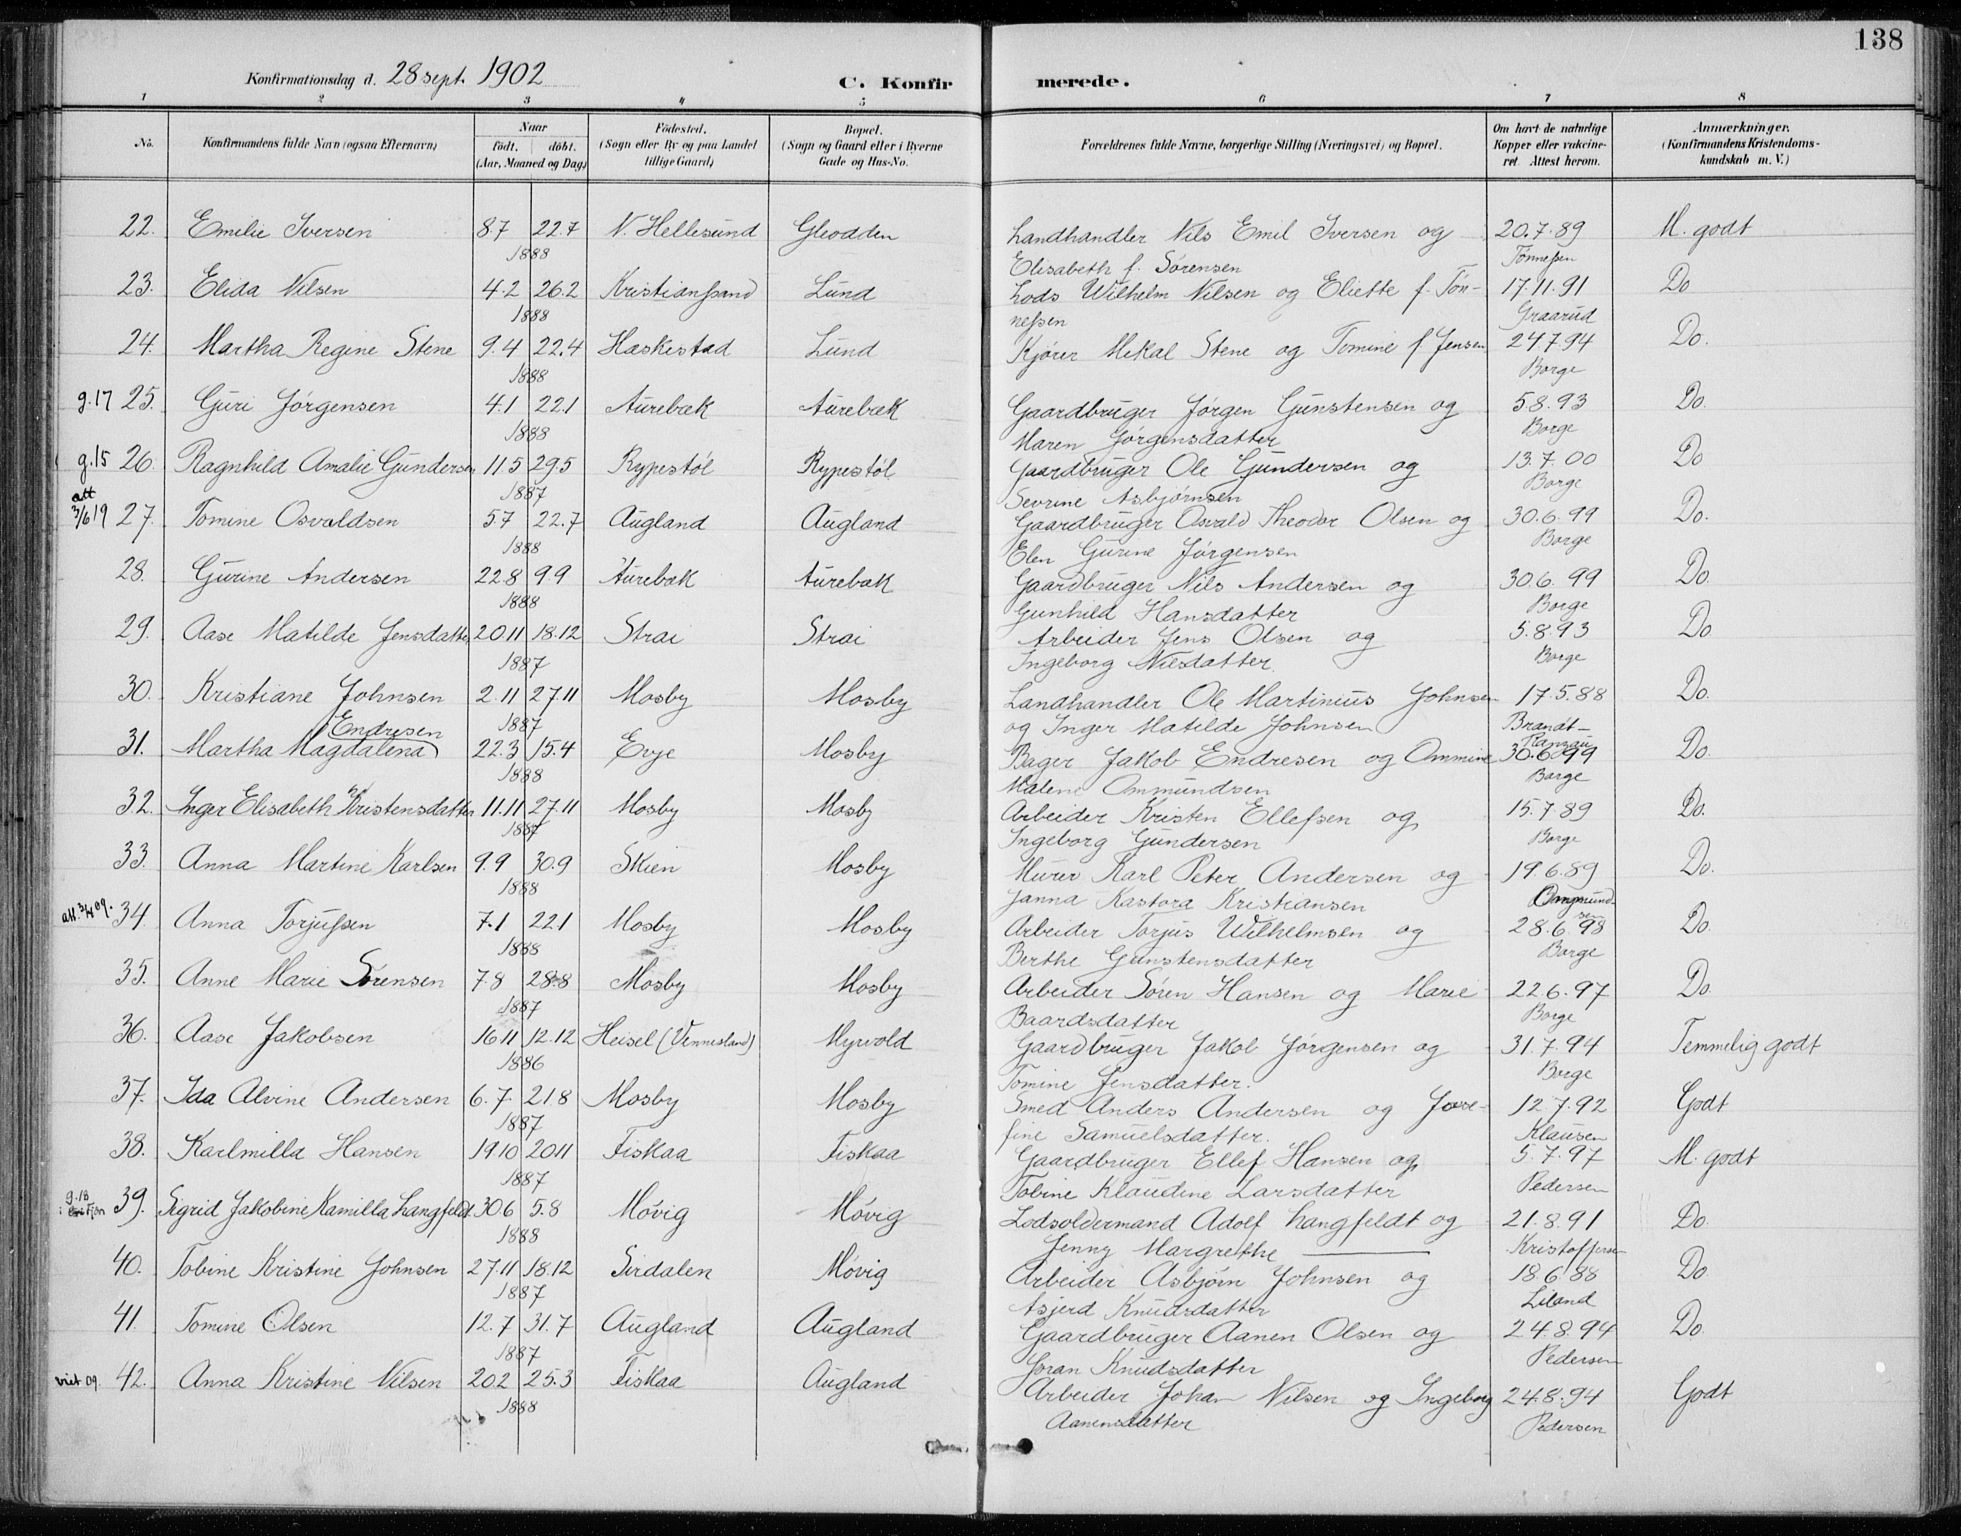 138
Konfirmationsdag d. 28 sept. 1902
C. Konfirmerede.
1 2 3 4 5 6 7 8
No.
Konfirmandens fulde Navn (ogsaa Efternavn)
Naar
født. døbt.
(Aar, Maaned og Dag)
Fødested.
(Sogn eller By og paa Landet
tillige Gaard)
Bopæl.
(Sogn og Gaard eller i Byerne
Gade og Hus-No.
Forældrenes fulde Navne, borgerlige Stilling (Næringsvei) og Bopæl.
Om havt de naturlige
Kopper eller vakcine-
ret. Attest herom.
Anmærkninger.
(Konfirmandens Kristendoms-
kundskab m. V.)
22. Emilie Iversen 8.7 22.7 N. Hellesund Gleodden Landhandler Nils Emil Iversen og 20.7.89 M. godt
1888 Elisabeth f. Sørensen Tønnesen
23. Elida Nilsen 4.2 26.2 Kristianssand Lund Lods Wilhelm Nilsen og Eliette f. Tøn- 17.11.91 Do
1888 nessen Graarud
24. Martha Regine Stene 9.4 22.4 Haskestad Lund Kjører Mikal Stene og Tomine f Jensen 24.7.94 Do.
1888 Borge
g.17 25. Guri Jørgensen 4.1 22.1 Aurebæk Aurebæk Gaardbruger Jørgen Gunstensen og 5.8.93 Do.
1888 Maren Jørgensdatter Borge
g.15 26. Ragnhild Amalie Gundersen 11.5 29.5 Rypestøl Rypestøl Gaardbruger Ole Gundersen og 13.7.00 Do
1887 Sevrine Asbjørnsen Borge
att 3/6 19 27. Tomine Osvaldsen 5.7 22.7 Augland Augland Gaardbruger Osvald Theodor Olsen og 30.6.99 Do.
1888 Elen Gurine Jørgensen Borge
28. Gurine Andersen 22.8 9.9 Aurebæk Aurebæk Gaardbruger Nils Andersen og 30.6.99 Do.
1888 Gunhild Hansdatter Borge
29. Aase Matilde Jensdatter 20.11 18.12 Strai Strai Arbeider Jens Olsen og 5.8.93 Do
1887 Ingeborg Nilsdatter. Borge
30. Kristiane Johnsen 2.11 27.11 Mosby Mosby Landhandler Ole Martinius Johnsen 17.5.88 Do.
1887 og Inger Matilde Johnsen Brandt-
Rantzau
31. Martha Magdalena Endresen 22.3 15.4 Evje Mosby Bager Jakob Endresen og Ommine 30.6.99 Do.
1888 Malene Ommundsen Borge
32. Inger Elisabeth Kristensdatter 11.11 27.11 Mosby Mosby Arbeider Kristen Ellefsen og 15.7.89 Do.
1887 Ingeborg Gundersen Borge
33. Anna Martine Karlsen 9.9 30.9 Skien Mosby Murer Karl Peter Andersen og 19.6.89 Do.
1888 Janna Kastora Kristiansen
att. 09. 34. Anna Torjussen 7.1 22.1 Mosby Mosby Arbeider Torjus Wilhelmsen og 28.6.98 Do.
1888 Berthe Gunstensdatter Borge
35. Anne Marie Sørensen 7.8 28.8 Mosby Mosby Arbeider Søren Hansen og Marie 22.6.97 Do
1887 Baardsdatter Borge
36. Aase Jakobsen 16.11 12.12 Heisel (Vennesland) Myrvold Gaardbruger Jakob Jørgensen og 31.7.94 Temmelig godt
1886 Tomine Jensdatter. Borge
37. Ida Alvine Andersen 6.7. 21.8 Mosby Mosby Smed Anders Andersen og Jose- 12.7.92 Godt
1887 fine Samuelsdatter. Klausen
38. Karlmilla Hansen 19.10 20.11 Fiskaa Fiskaa Gaardbruger Ellef Hansen og 5.7.97 M. godt
1887 Tobine Klaudine Larsdatter Pedersen
g. 18 39. Sigrid Jakobine Kamilla Langfeldt 30.6 5.8 Møvig Møvig Lodsoldermand Adolf Langfeldt og 21.8.91 Do.
1888 Jenny Margrethe Kristoffersen
40. Tobine Kristine Johnsen 27.11 18.12 Sirdalen Møvig Arbeider Asbjørn Johnsen og 18.6.88 Do
1887 Asjerd Knudsdatter Liland
41. Tomine Olsen 12.7 31.7 Augland Augland Gaardbruger Aanen Olsen og 24.8.94 Do
1887 Joran Knudsdatter Pedersen
viet 09. 42. Anna Kristine Nilsen 20.2 25.3 Fiskaa Augland Arbeider Johan Nilsen og Ingeborg 24.8.94 Godt
1888 Aanensdatter Pedersen